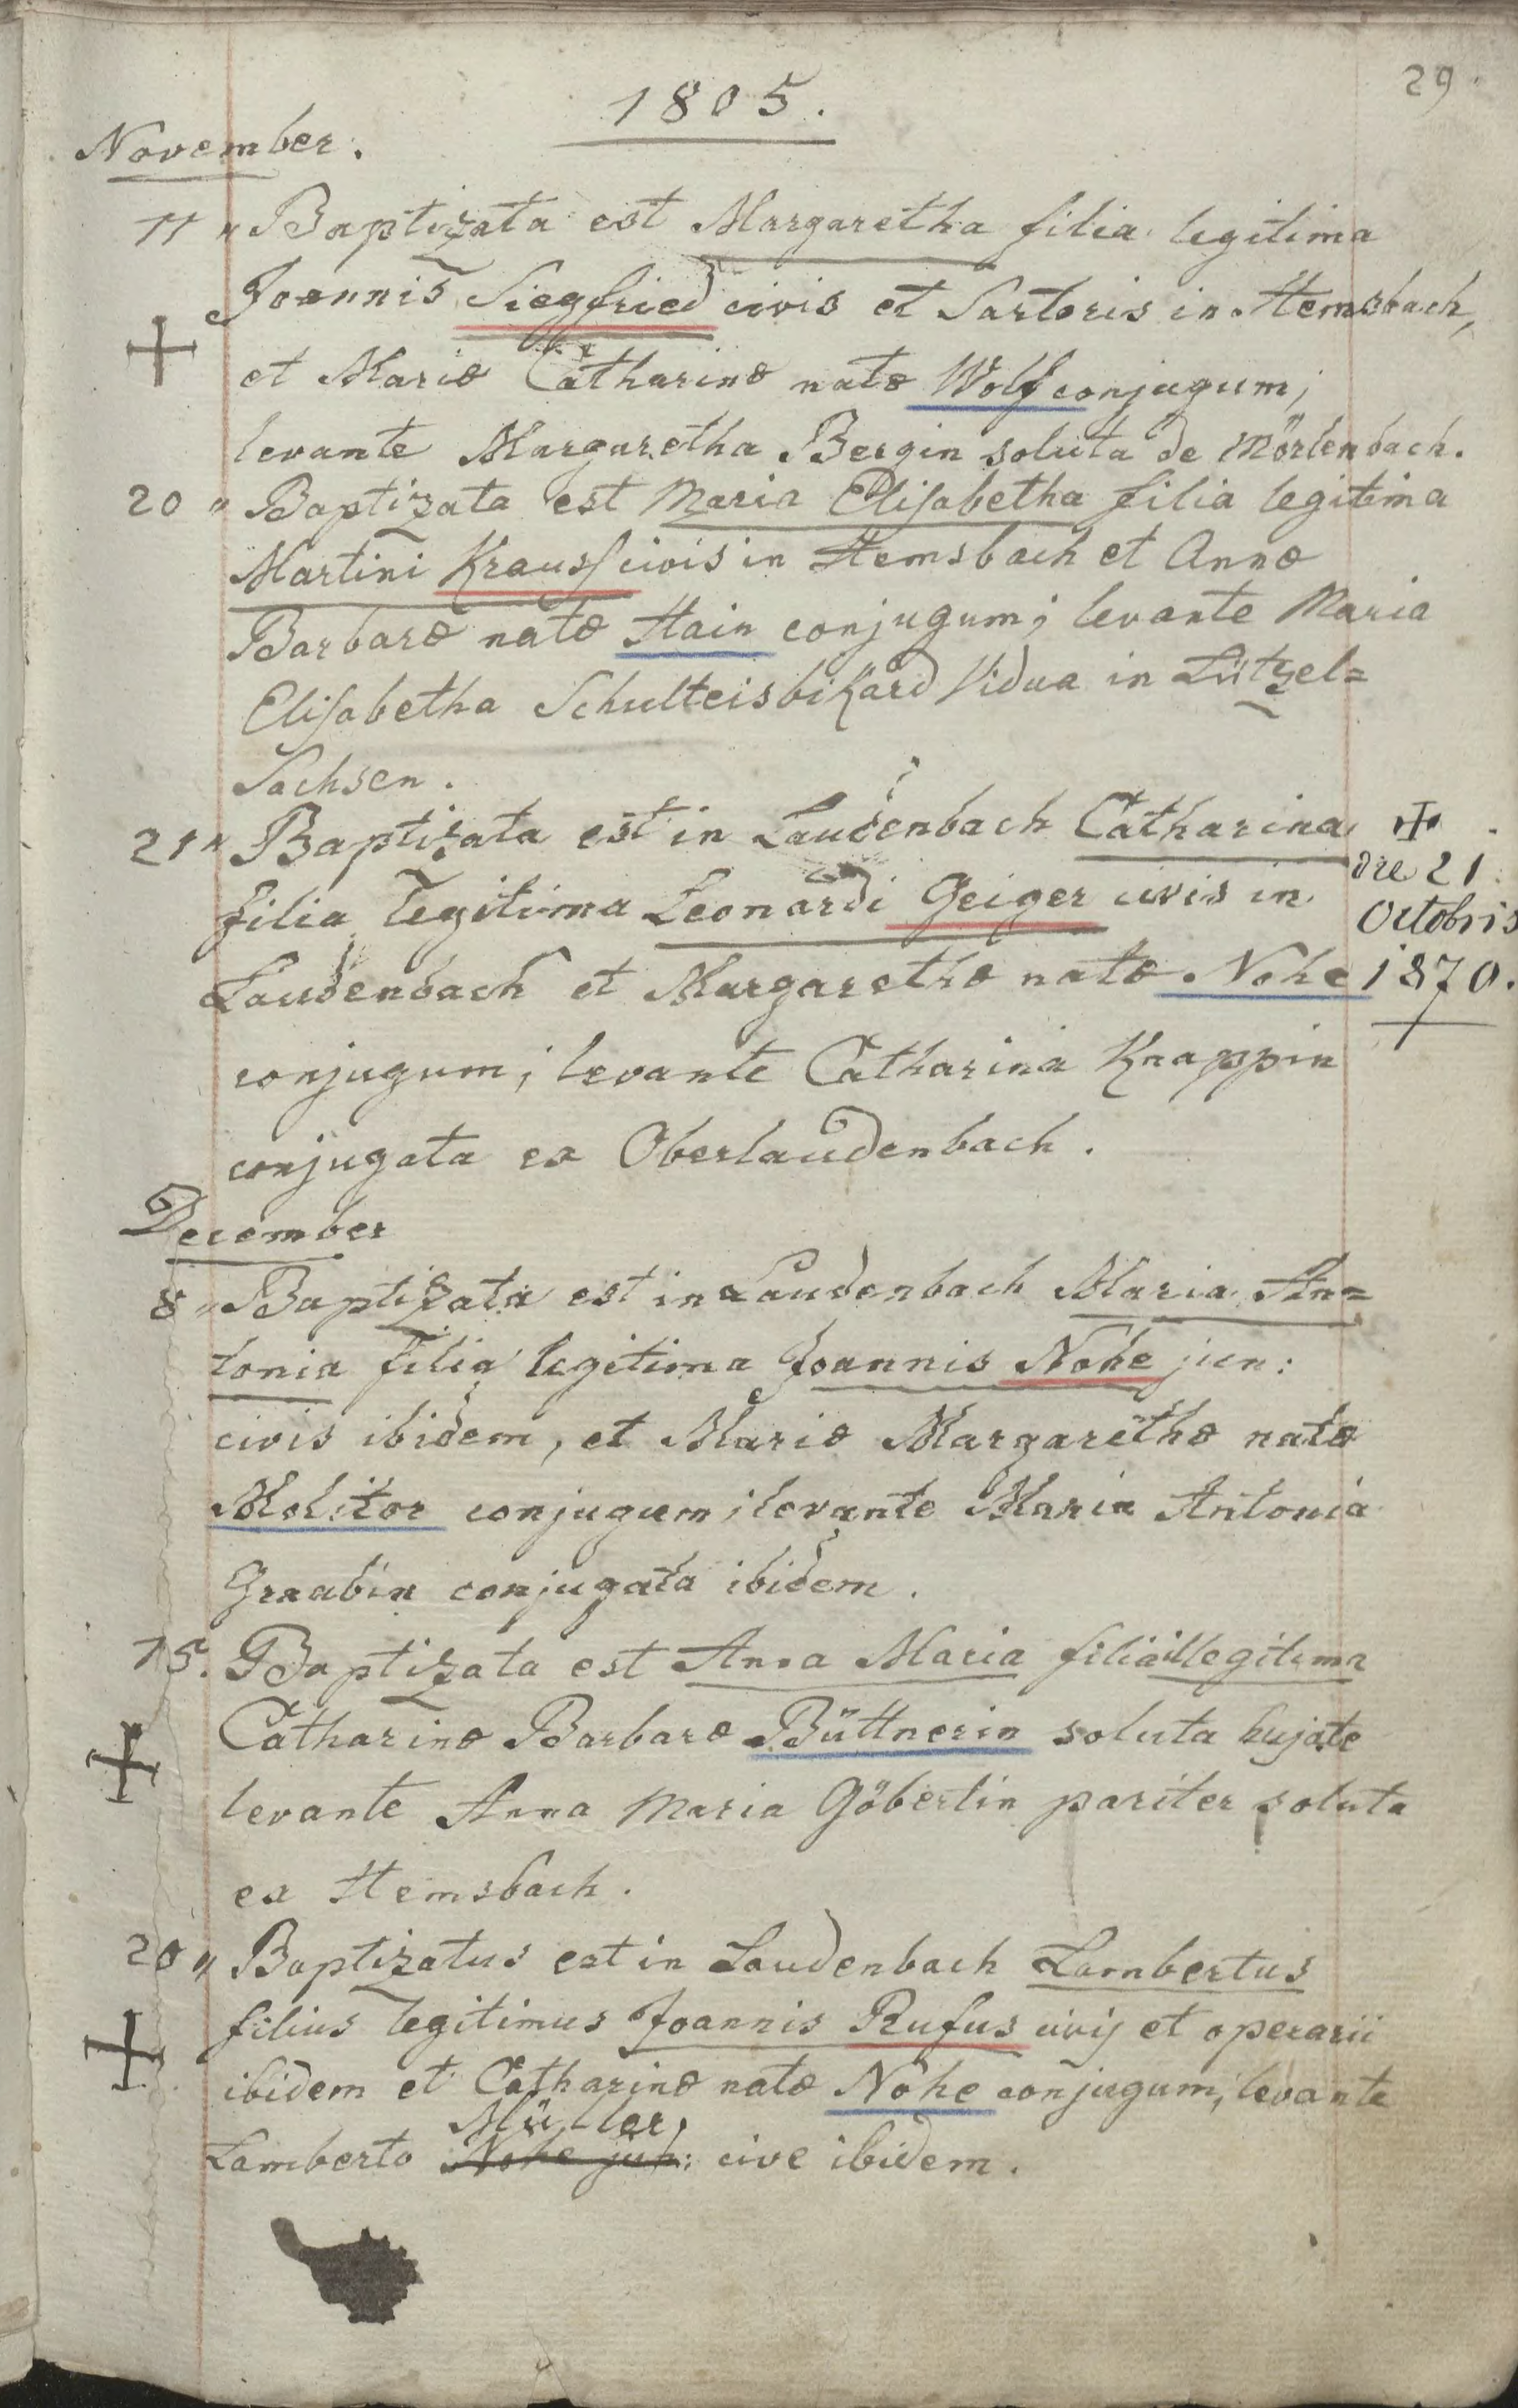 29.
1805.
November.
11 „ Baptizata est Margaretha filia legitima
Joannis Siegfried civis et Sartoris in Hemsbach,
et Mariæ Catharinæ natæ Wolf conjugum;
levante Margaretha Bergin soluta de Mörlenbach.
20 „ Baptizata est Maria Elisabetha filia legitima
Martini Krauss civis in Hemsbach et Annæ
Barbaræ natæ Hain conjugum; levante Maria
Elisabetha Vidua in Lützel=
Sachsen.
21 „ Baptizata est in Laudenbach Catharina
filia legitima Leonardi Geiger civis in
Laudenbach et Margarethæ natæ Nohe
conjugum; levante Catharina Knappin
conjugata ex Oberlaudenbach.
✠
die 21.
Octobris
1870.
December
8 „ Baptizata est in Laudenbach Maria An=
tonia filia legitima Joannis Nohe jun:
civis ibidem, et Mariæ Margarethæ natæ
Molitor conjugum; levante Maria Antonia
Graabin conjugata ibidem.
15. Baptizata est Anna Maria filia illegitima
Catharinæ Barbaræ Büttnerin soluta hujate
levante Anna Maria Göbertin pariter soluta
ex Hemsbach.
20 „ Baptizatus est in Laudenbach Lambertus
filius legitimus Joannis Rufus civis et operarii
ibidem et Catharinæ natæ Nohe conjugum; levante
Müller,
Lamberto Nohe jun: cive ibidem.